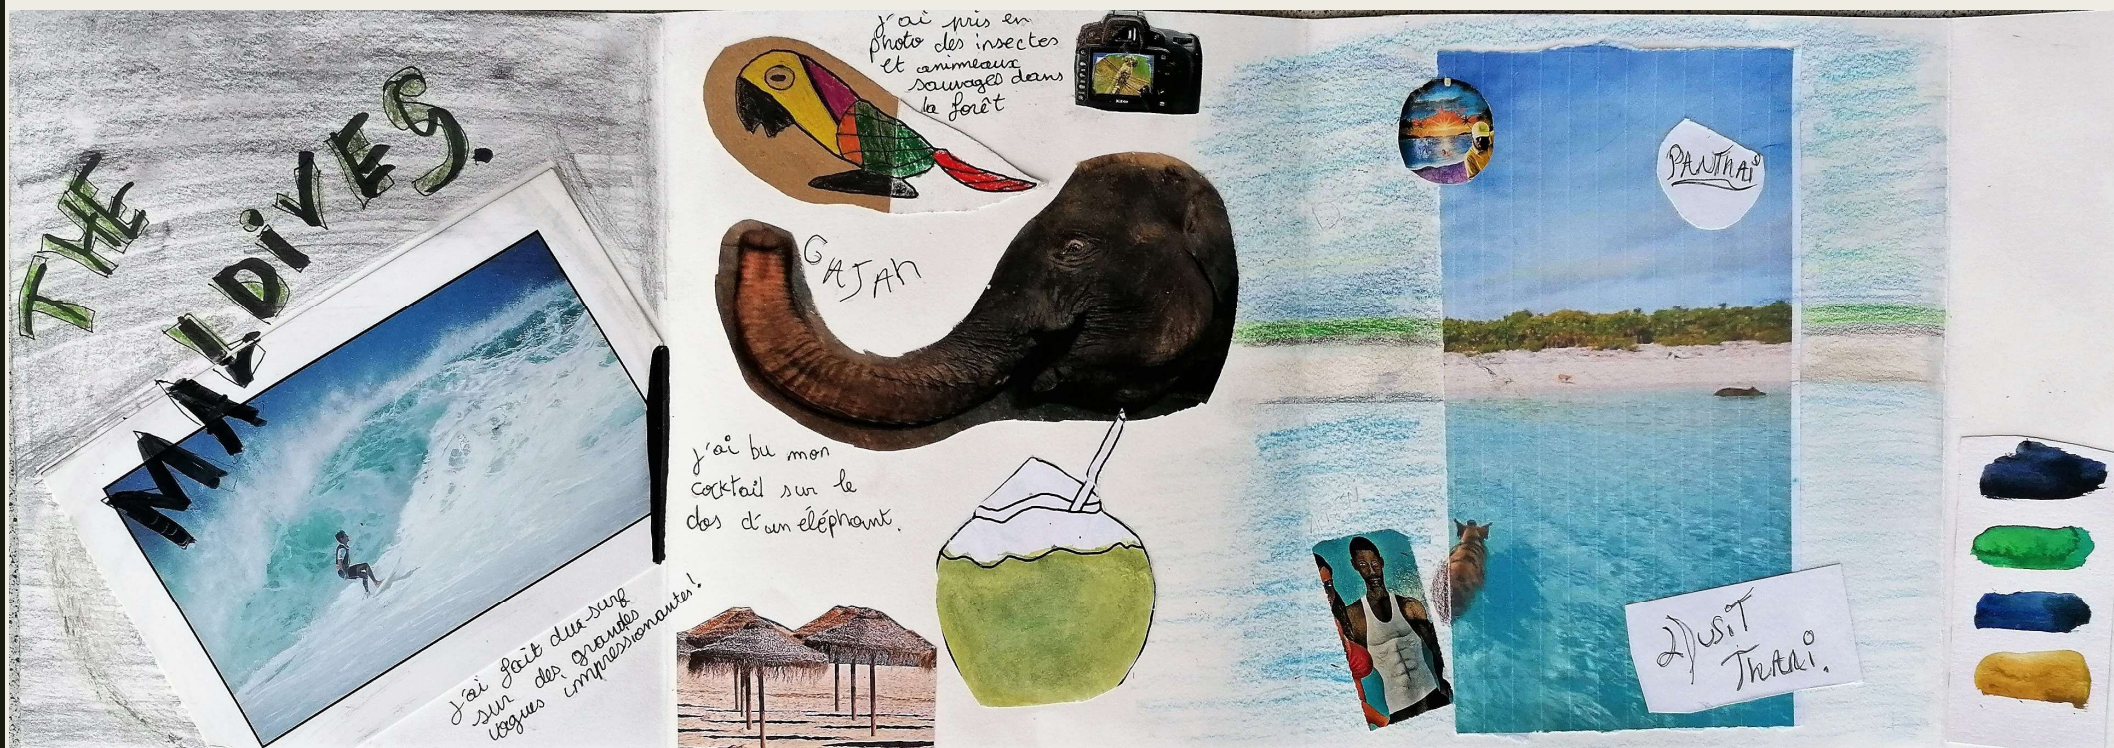 THE
MALDIVES.
j'ai fait du surf
sur des grandes
vagues impressionantes!
j'ai pris en
photo des insectes
et animeaux
sauvages dans
la forêt
GAJAh
j'ai bu mon
cocktail sur le
dos d'un éléphant.
PANThAi
DUSiT
ThAni.